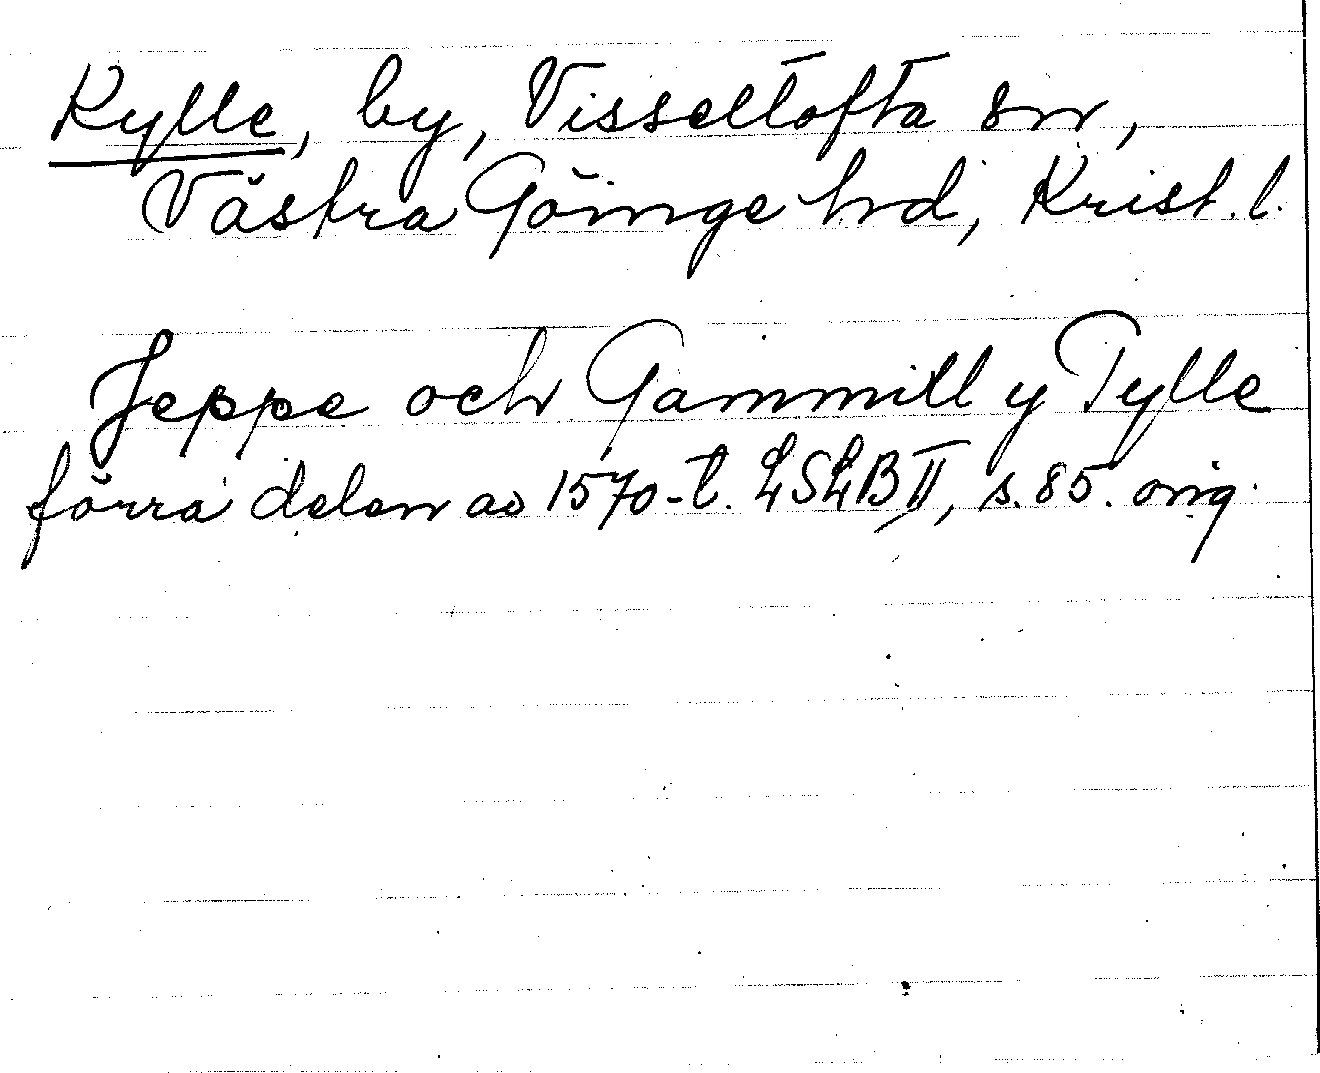 Kylle, by, Visseltofta sn,
Västra Göinge hrd, Krist. l.
Jeppe och Gammill y Tylle
förra delen av 1570-t. LSLB II, s. 85. orig.